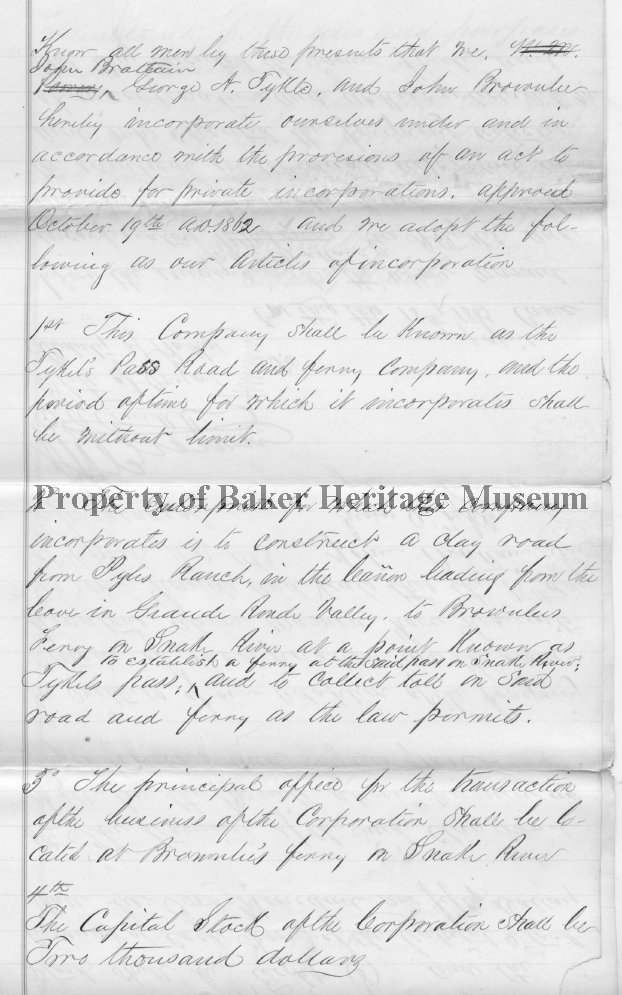 Know all men by these presents that we,
John Brattain
George A. Tykle, and John Brownlee
hereby incorporate ourselves under and in
accordance with the provisions of an act to
provide for private incorporations. approved
October 19th A.D. 1862 and we adopt the fol-
lowing as our Articles of incorporation
1st This Company shall be Known as the
Tykel's Pass Road and ferry Company, and the
period of time for which it incorporates shall
be without limit.
Property of Baker Heritage Museum
The for which this Company
incorporates is to construct a clay road
from Pyles Ranch, in the Cañon leading from the
Cove in Grande Ronde Valley. to Brownlees
Ferry on Snake River at a point Known as
to establish a ferry at the said pass on Snake River;
Tykels pass; and to collect toll on said
road and ferry as the law permits.
3d The principal office for the transaction
of the business of the Corporation shall be lo-
cated at Brownlee's ferry on Snake River
4th
The Capital Stock of the Corporation shall be
Two thousand dollars